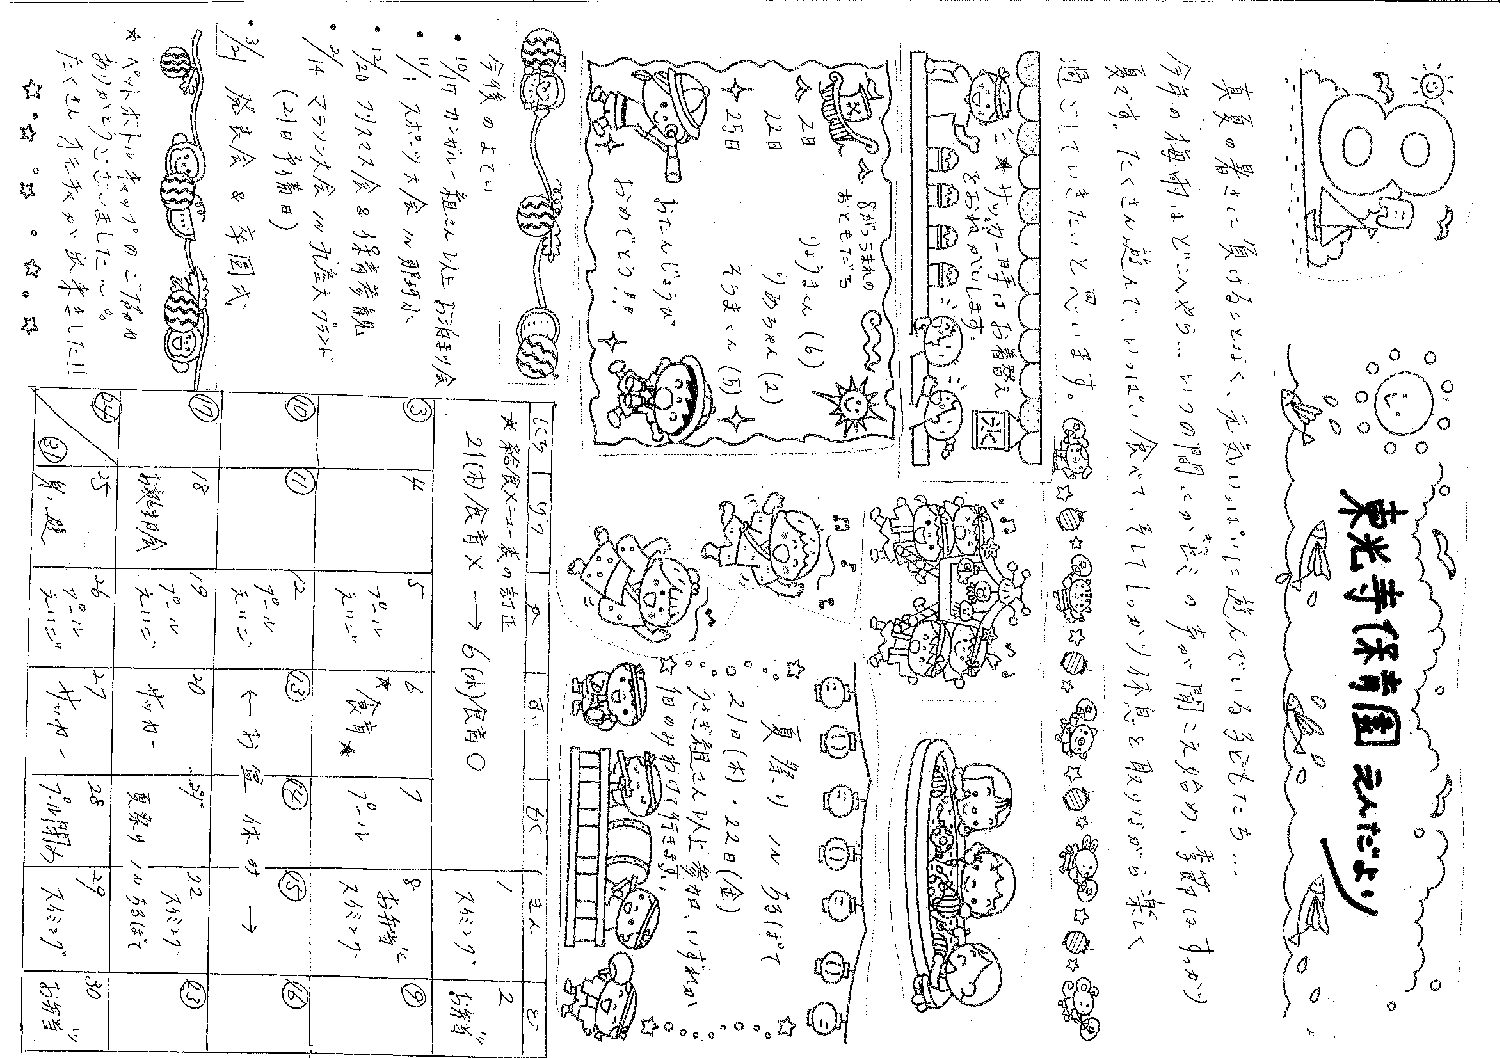 8
東光寺保育園 えんだより
真夏の暑さに負けることなく、元気いっぱいに遊んでいる子どもたち…
今年の梅雨はどこへやら…いつの間にか蝉の声が聞こえ始め、季節はすっかり
夏です。たくさん遊んで、いっぱい食べて、そしてしっかり休息を取りながら楽しく
過ごしていきたいと思います。
★サッカー時はお着替え
をお願いします。
氷
8がつうまれの
おともだち
2日 りょうまくん(6)
22日 りおちゃん(2)
25日 そうまくん(5)
おたんじょうび
おめでとう!!
夏祭り IN
21日(木)・22日(金)
うさぎ組さん以上参加、いずれか
1日のみわけて行きます。
今後のよてい
・10/17 カンガルー組さん以上 お泊まり会
・11/1 スポーツ大会 IN 那珂小
・12/20 クリスマス会&保育参観
・2/14 マラソン大会 IN 九産大グランド
(21日予備日)
・3/21 発表会 & 卒園式
★ペットボトルキャップのご協力
ありがとうございました。
たくさん
が出来ました!!
★給食メニュー表の訂正
21(木)食育× → 6(水)食育○
にち げつ か すい もく きん ど
1 スイミング 2 お弁当
3 4 5 プール えいご 6 ★食育★ 7 プール 8 お弁当 スイミング 9
10 11 12 プール えいご 13 ← お盆休み → 14 15 16
17 18 お誕生会 19 プール えいご 20 サッカー 21 夏祭り IN 22 スイミング 23
24 31 25 26 プール えいご 27 サッカー 28 プール閉い 29 スイミング 30 お弁当